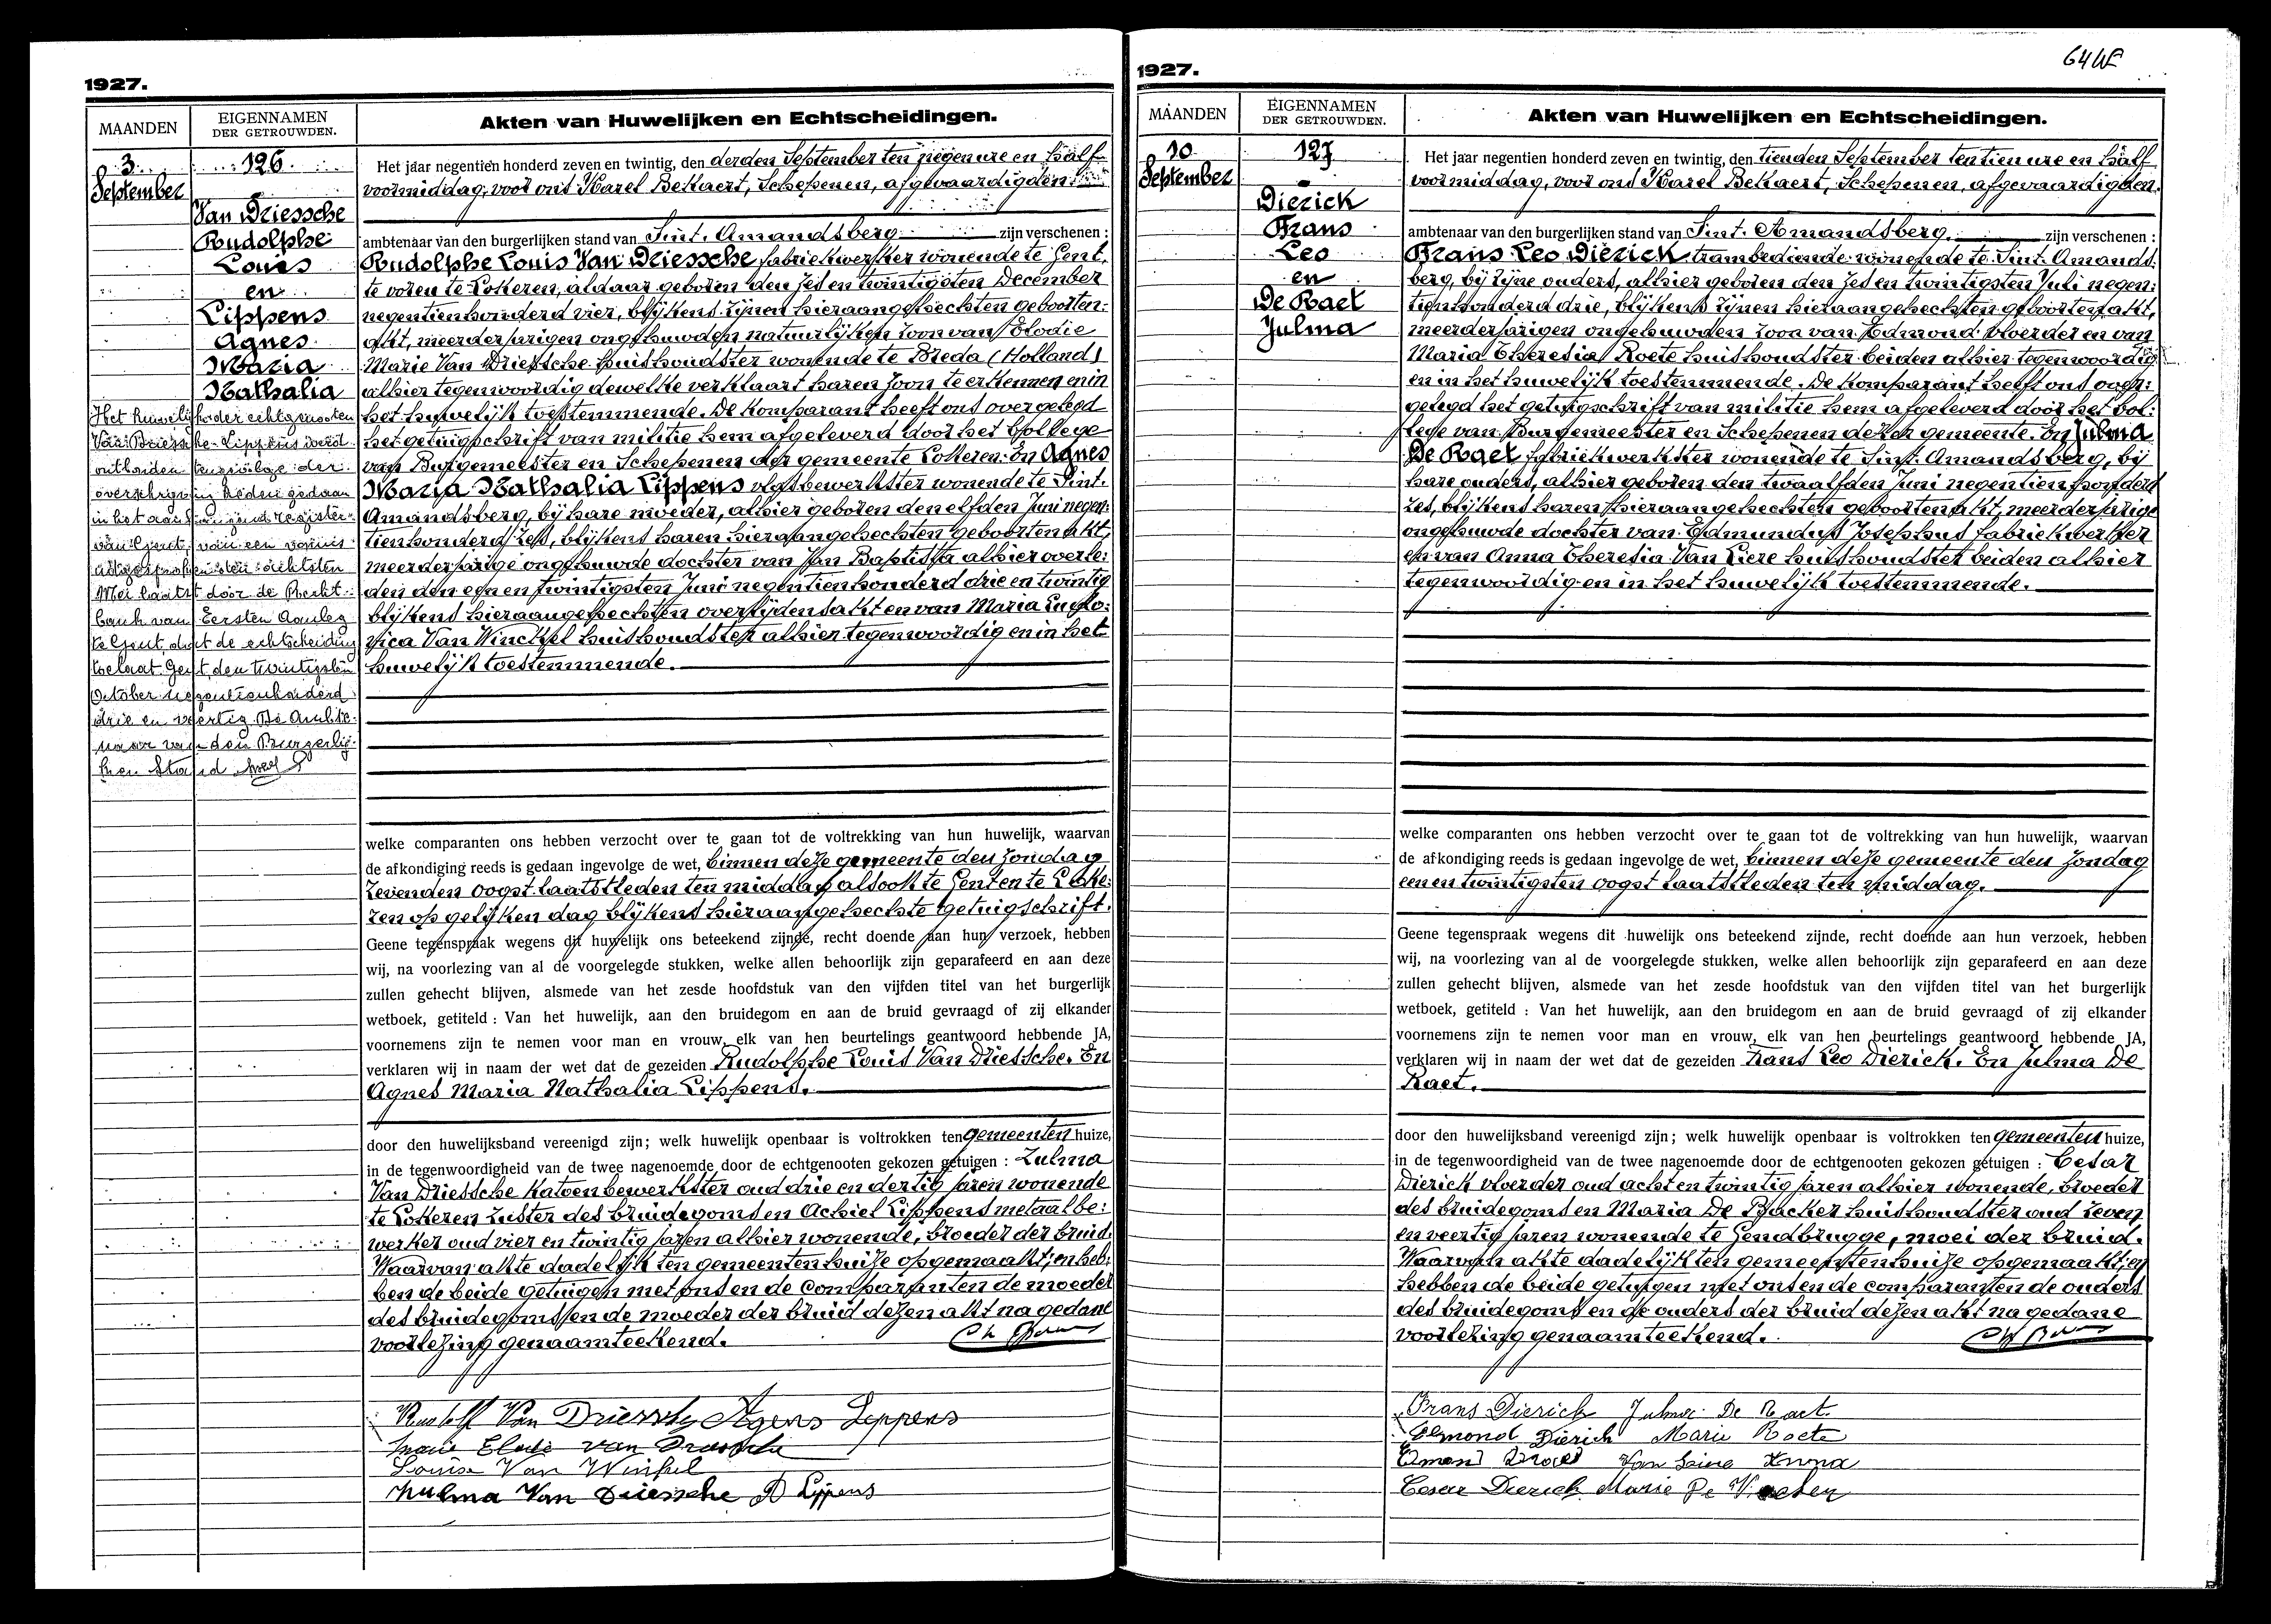 1927.
MAANDEN
EIGENNAMEN
DER GETROUWDEN.
Akten van Huwelijken en Echtscheidingen.
3
September
126
Van Driessche
Rudolphe
Louis
en
Lippens
Agnes
Maria
Nathalia
Het huwelijk der echtgenooten
Van Driessche-Lippens werd
ontbonden tengevolge der
overschrijving heden gedaan
in het aan register
van Gent, van een vonnis
uitgesproken den achtsten
Mei laatst door de Recht-
bank van Eersten Aanleg
te Gent, dat de echtscheiding
toelaat. Gent den twintigsten
October negentienhonderd
drie en veertig. De Ambte-
naar van den Burgerlij-
ken Stand
Het jaar negentien honderd zeven en twintig, den derden September ten negen ure en half
voormiddag, voor ons Karel Bekaert, Schepenen, afgevaardigden
ambtenaar van den burgerlijken stand van Sint. Amandsberg zijn verschenen :
Rudolphe Louis Van Driessche fabriekwerker wonende te Gent,
te voren te Lokeren, aldaar geboren den zes en twintigsten December
negentienhonderd vier, blijkens zijnen hieraangehechten geboorten:
akt, meerderjarigen ongehuwden natuurlijken zoon van Elodie
Marie Van Driessche huishoudster wonende te Breda (Holland)
alhier tegenwoordig dewelke verklaart haren zoon te erkennen en in
het huwelijk toestemmende. De Komparant heeft ons overgelegd
het getuigschrift van militie hem afgeleverd door het College
van Burgemeester en Schepenen der gemeente Lokeren. En Agnes
Maria Nathalia Lippens vlasbewerkster wonende te Sint.
Amandsberg, bij hare moeder, alhier geboren den elfden Juni negen:
tienhonderd zes, blijkens haren hieraangehechten geboorten akt,
meerderjarige ongehuwde dochter van Jan Baptista alhier overle:
den den een en twintigsten Juni negentienhonderd drie en twintig
blijkens hieraangehechten overlijdensakt en van Maria Ludo:
vica Van Winckel huishoudster alhier tegenwoordig en in het
huwelijk toestemmende.
welke comparanten ons hebben verzocht over te gaan tot de voltrekking van hun huwelijk, waarvan
de afkondiging reeds is gedaan ingevolge de wet, binnen deze gemeente den zondag
zevenden oogst laatstleden ten middag alsook te Gent en te Loke:
ren op gelijken dag blijkens hieraangehechte getuigschrift.
Geene tegenspraak wegens dit huwelijk ons beteekend zijnde, recht doende aan hun verzoek, hebben
wij, na voorlezing van al de voorgelegde stukken, welke allen behoorlijk zijn geparafeerd en aan deze
zullen gehecht blijven, alsmede van het zesde hoofdstuk van den vijfden titel van het burgerlijk
wetboek, getiteld : Van het huwelijk, aan den bruidegom en aan de bruid gevraagd of zij elkander
voornemens zijn te nemen voor man en vrouw, elk van hen beurtelings geantwoord hebbende JA,
verklaren wij in naam der wet dat de gezeiden Rudolphe Louis Van Driessche. En
Agnes Maria Nathalia Lippens.
door den huwelijksband vereenigd zijn; welk huwelijk openbaar is voltrokken ten gemeenten huize,
in de tegenwoordigheid van de twee nagenoemde door de echtgenooten gekozen getuigen : Zulma
Van Driessche Katoenbewerkster oud drie en dertig jaren wonende
te Lokeren zuster des bruidegoms en Achiel Lippens metaalbe:
werker oud vier en twintig jaren alhier wonende, broeder der bruid.
Waarvan akte dadelijk ten gemeentenhuize opgemaakt; en heb:
ben de beide getuigen met ons en de comparanten de moeder
des bruidegoms en de moeder der bruid dezen akt na gedane
voorlezing genaamteekend.
Rudolf Van Driessche Agnes Lippens
Marie Elodie Van Driessche
Louise Van Winkel
Zulma Van Driessche A Lippens
1927.
MAANDEN
EIGENNAMEN
DER GETROUWDEN.
Akten van Huwelijken en Echtscheidingen.
10
September
127
Dierick
Frans
Leo
en
De Raet
Julma
Het jaar negentien honderd zeven en twintig, den tienden September ten tien ure en half
voormiddag, voor ons Karel Bekaert, Schepenen, afgevaardigden.
ambtenaar van den burgerlijken stand van Sint. Amandsberg. zijn verschenen :
Frans Leo Dierick trambediende wonende te Sint. Amands:
berg, bij zijne ouders, alhier geboren den zes en twintigsten Juli negen:
tienhonderd drie, blijkens zijnen hieraangehechten geboorten akt,
meerderjarigen ongehuwden zoon van Edmond vloerder en van
Maria Theresia Roete huishoudster beiden alhier tegenwoordig
en in het huwelijk toestemmende. De Komparant heeft ons over:
gelegd het getuigschrift van militie hem afgeleverd door het Col:
lege van Burgemeester en Schepenen dezer gemeente. En Julma
De Raet fabriekwerkster wonende te Sint. Amandsberg, bij
hare ouders, alhier geboren den twaalfden Juni negentienhonderd
zes, blijkens haren hieraangehechten geboorten akt, meerderjarige
ongehuwde dochter van Edmundus Josephus fabriekwerker
en van Anna Theresia Van Liere huishoudster beiden alhier
tegenwoordig en in het huwelijk toestemmende.
welke comparanten ons hebben verzocht over te gaan tot de voltrekking van hun huwelijk, waarvan
de afkondiging reeds is gedaan ingevolge de wet, binnen deze gemeente den zondag
een en twintigsten oogst laatstleden ten middag.
Geene tegenspraak wegens dit huwelijk ons beteekend zijnde, recht doende aan hun verzoek, hebben
wij, na voorlezing van al de voorgelegde stukken, welke allen behoorlijk zijn geparafeerd en aan deze
zullen gehecht blijven, alsmede van het zesde hoofdstuk van den vijfden titel van het burgerlijk
wetboek, getiteld : Van het huwelijk, aan den bruidegom en aan de bruid gevraagd of zij elkander
voornemens zijn te nemen voor man en vrouw, elk van hen beurtelings geantwoord hebbende JA,
verklaren wij in naam der wet dat de gezeiden Frans Leo Dierick. En Julma De
Raet.
door den huwelijksband vereenigd zijn; welk huwelijk openbaar is voltrokken ten gemeenten huize,
in de tegenwoordigheid van de twee nagenoemde door de echtgenooten gekozen getuigen : Cesar
Dierick vloerder oud acht en twintig jaren alhier wonende, broeder
des bruidegoms en Maria De Backer huishoudster oud zeven
en veertig jaren wonende te Gendbrugge, moei der bruid.
Waarvan akte dadelijk ten gemeentenhuize opgemaakt; en
hebben de beide getuigen met ons en de comparanten de ouders
des bruidegoms en de ouders der bruid dezen akt na gedane
voorlezing genaamteekend.
Frans Dierick Julma De Raet.
Edmond Dierick Marie Roete
Van Anna
Cesar Dierick Marie De